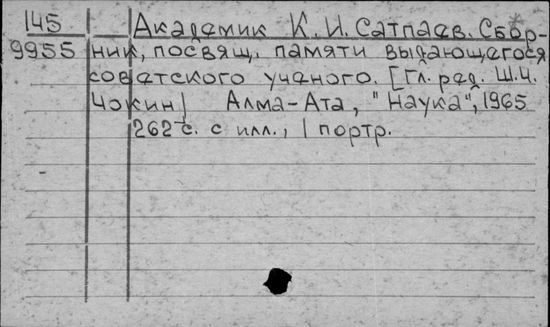 145 Академик К. И. Сатпаев. Сбор-
9955 ник, посвящ. памяти выдающегося
советского ученого. [Гл. ред. Ш. Ч.
Чокин] Алма-Ата, "Наука", 1965
262 с. с илл.; 1 портр.